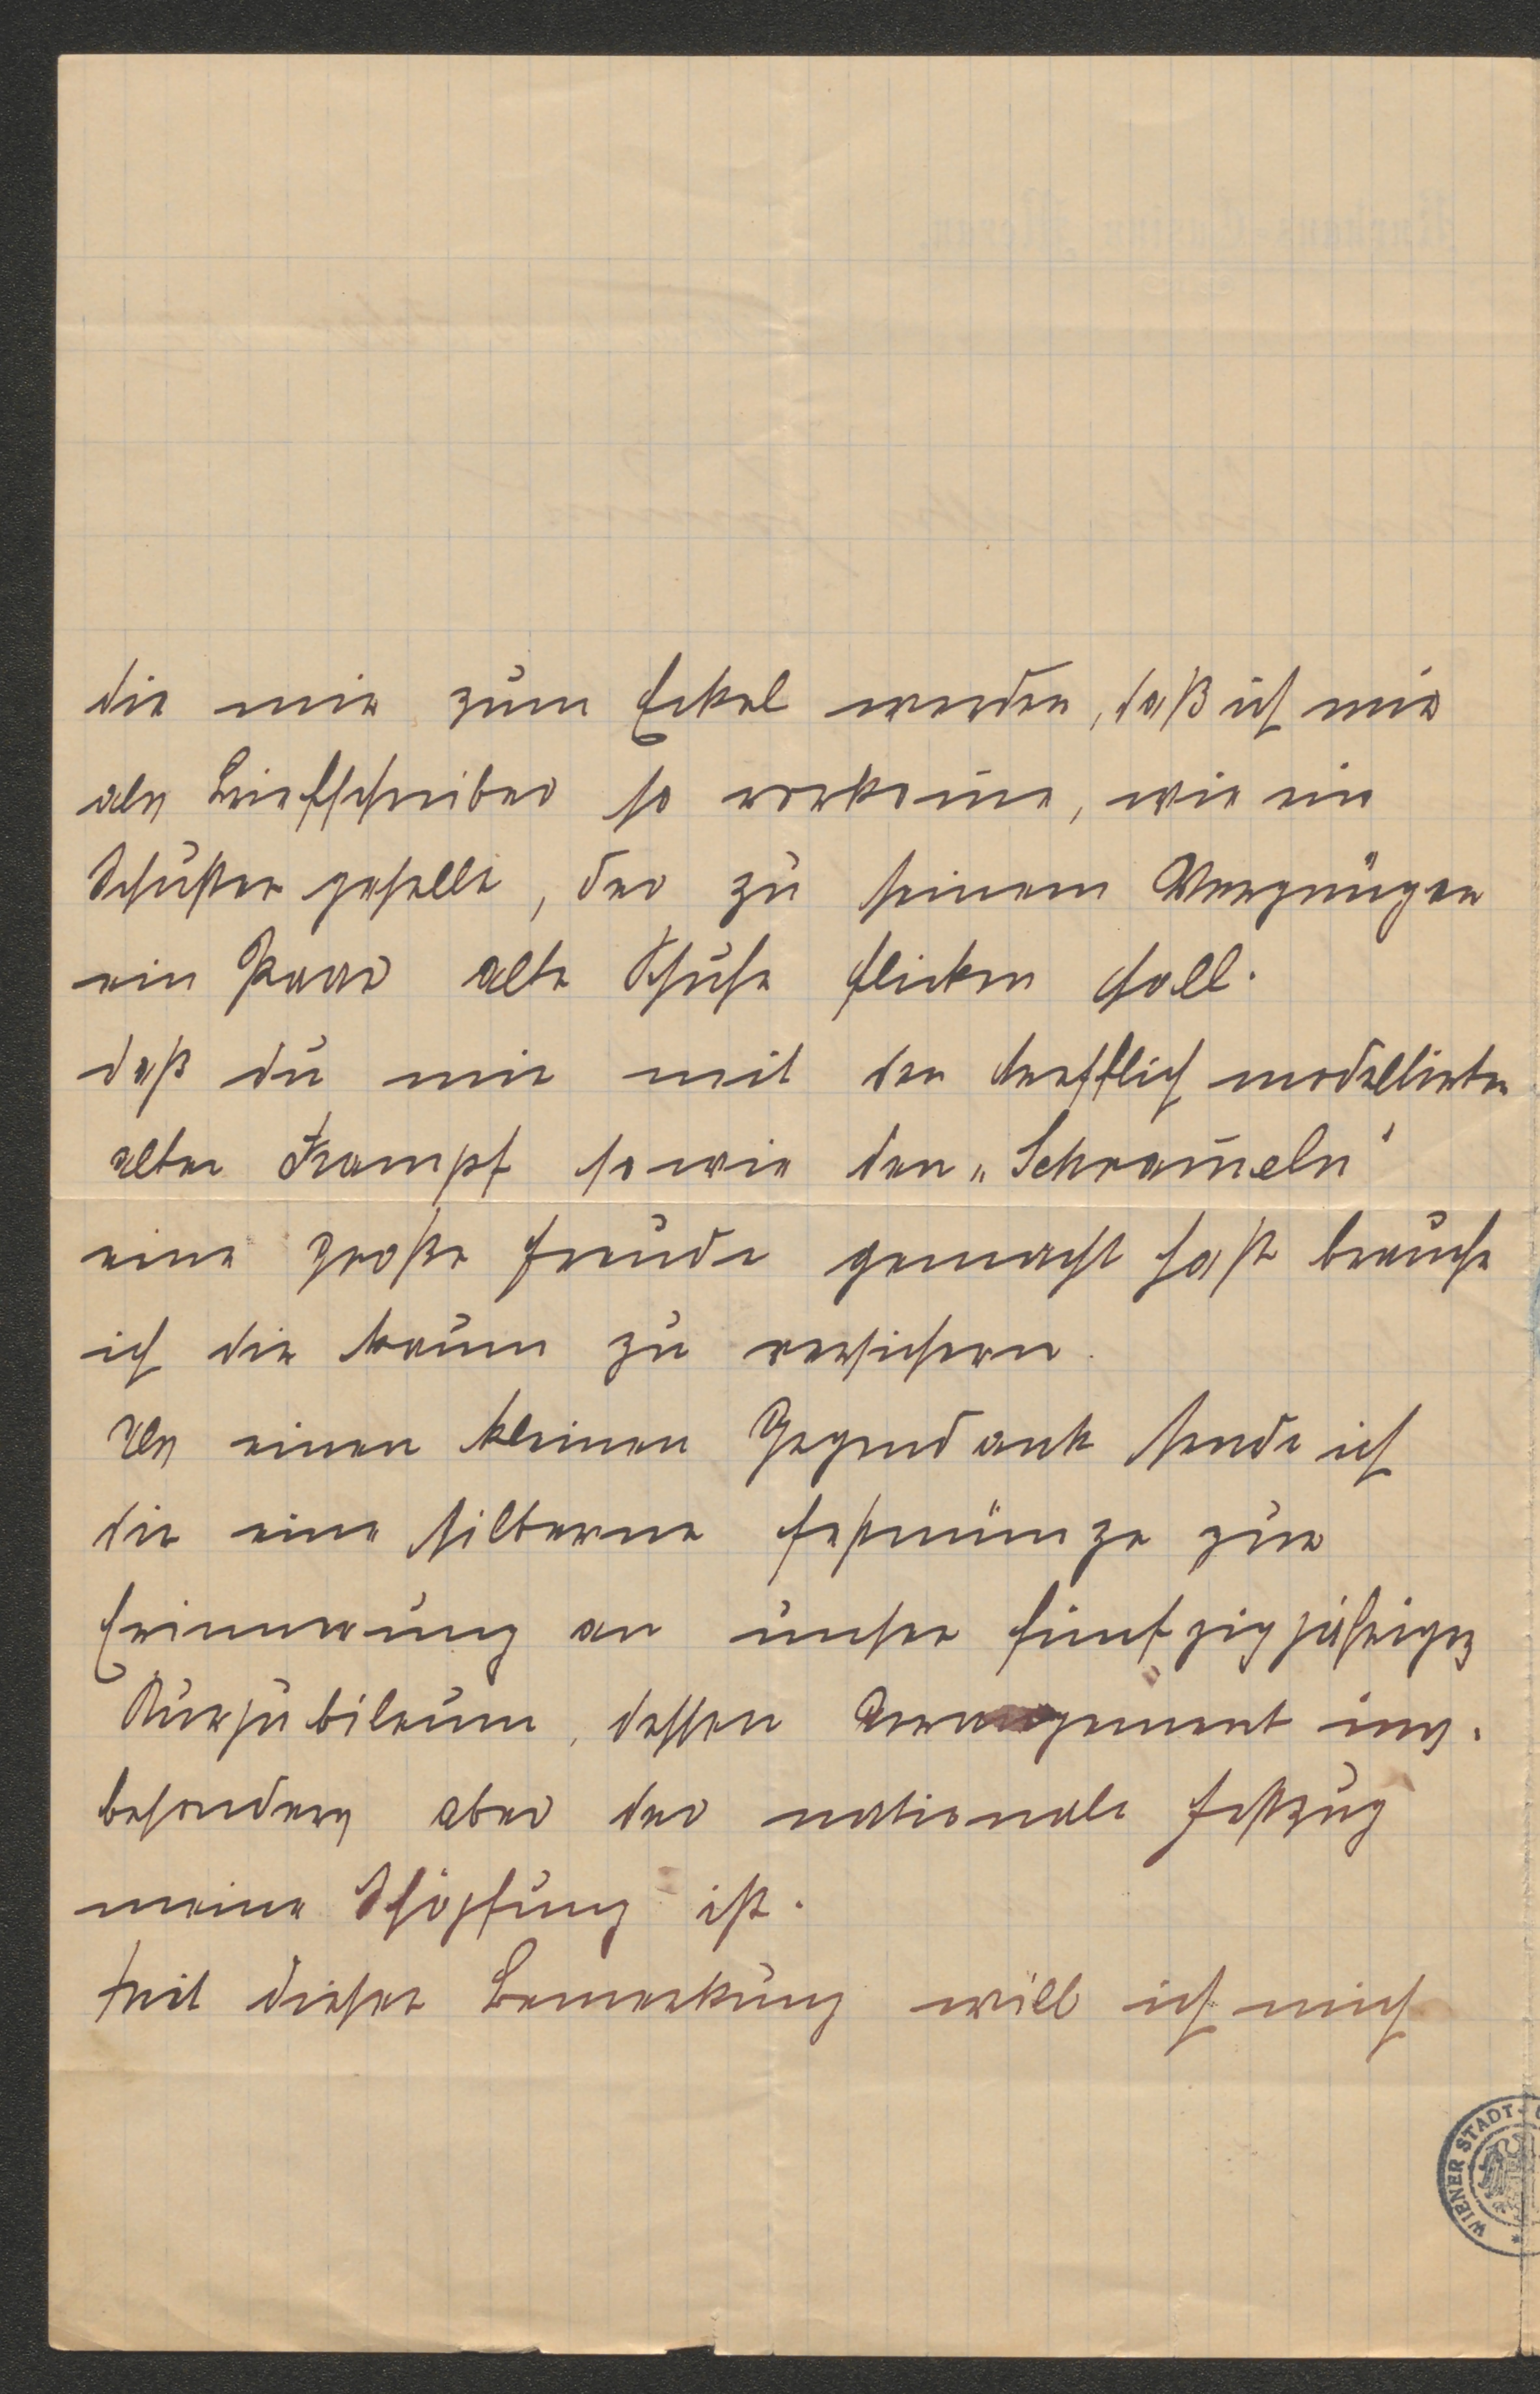 die mir zum Eckel werden, daß ich mir
als Briefschreiber so vorkom̅e, wie ein
Schustergeselle, der zu seinem Vergnügen
ein Paar alte Schuhe flicken soll.
daß du mir mit den trefflich modellirten
alten sowie den „Schram̅eln“
eine große Freude gemacht hast brauche
ich dir kaum zu versichern.
Als einen kleinen Gegendank sende ich
dir eine silberne Festmünze zur
Erinnerung an unser fünfzigjähriges
Kurjubileum, dessen Arrangement ins-
besonders aber der nationale Festzug
meine Schöpfung ist.
Mit dieser Bemerkung will ich mich
WIENER STADT-